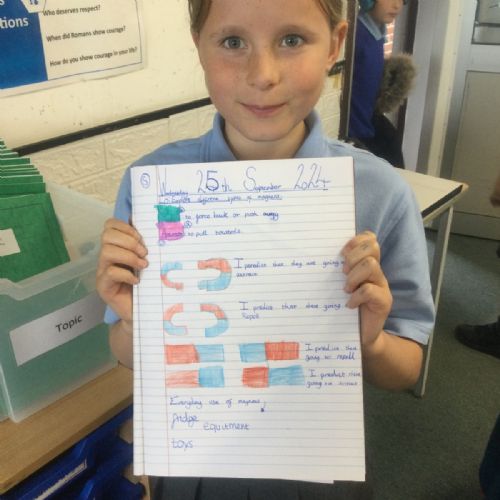 Who deserves respect?
When did Romans show courage?
How do you show courage in your life?
Topic
Wednesday 25th September 2024
to force back or push away
to pull towards
I predice that they are going to
I predice that there going to
repell
I predice there
going to repell
I predice there
going to
Everyday use of magnets!
fridge equitment
toys